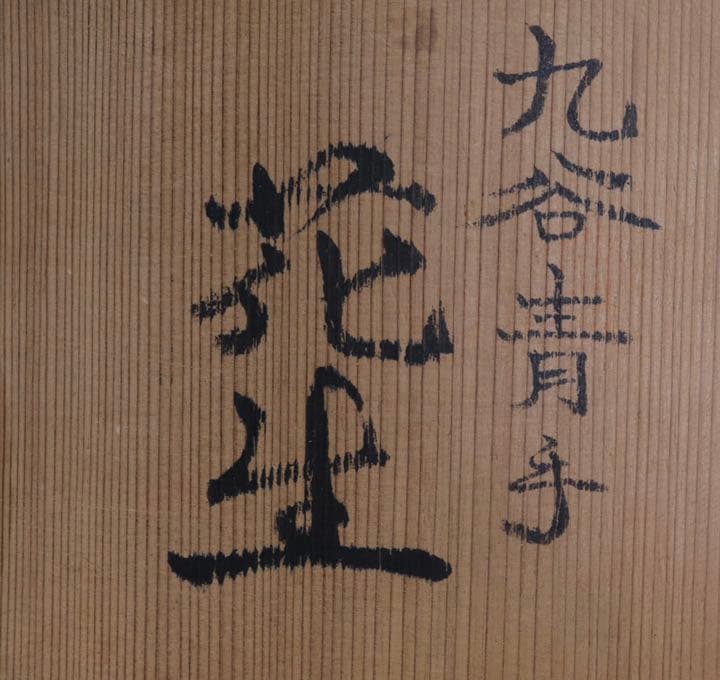 九谷青手
花生